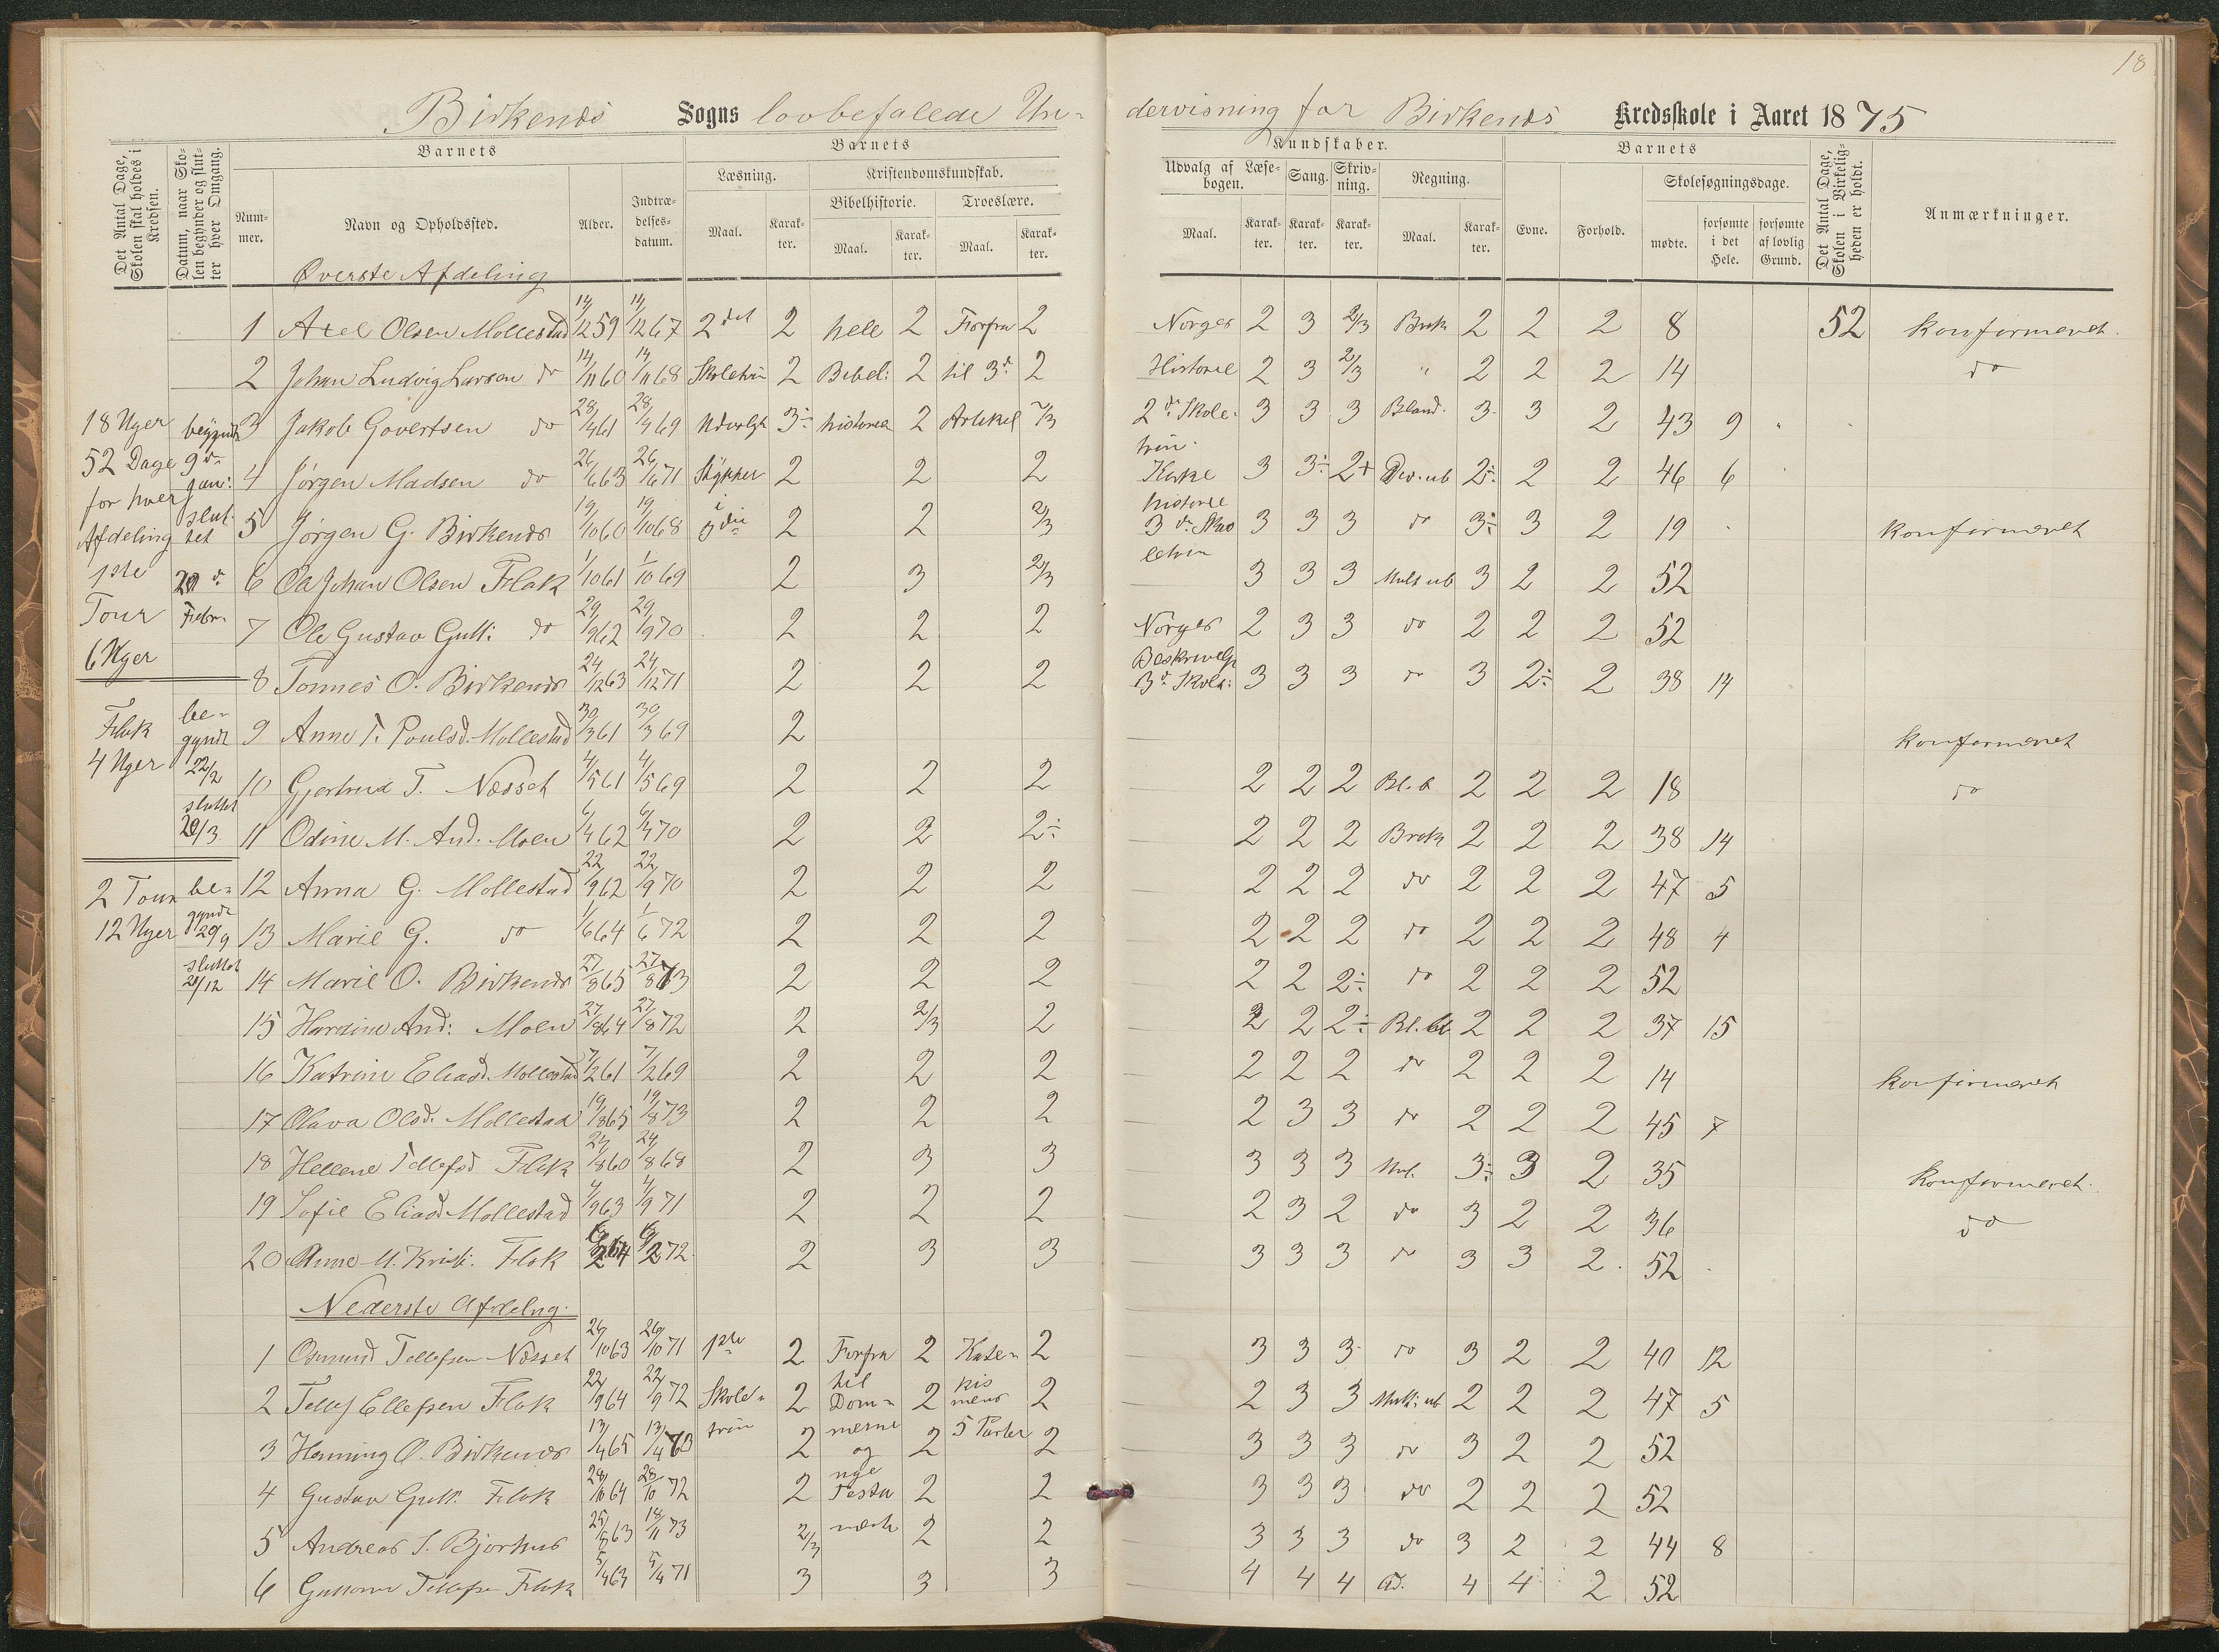 18
Birkenæs Sogns lovbefalede Un-
dervisning for Birkenæs Kredsskole i Aaret 1875
Det Antal Dage, Skolen skal holdes i Kredsen.
Datum, naar Skolen begynder og slutter hver Omgang.
Barnets
Nummer.
Navn og Opholdssted.
Alder.
Indtrædelsesdatum.
Barnets
Læsning.
Maal.
Karakter.
Kristendomskundskab.
Bibelhistorie.
Maal.
Karakter.
Troeslære.
Maal.
Karakter.
Kundskaber.
Udvalg af Læsebogen.
Maal.
Karakter.
Sang.
Karakter.
Skrivning.
Karakter.
Regning.
Maal.
Karakter.
Barnets
Evne.
Forhold.
Skolesøgningsdage.
mødte.
forsømte i det Hele.
forsømte af lovlig Grund.
Det Antal Dage, Skolen i Virkeligheden er holdt.
Anmærkninger.
Øverste Afdeling
1 Axel Olsen Mollestad 14/12 59 14/12 67 2det 2 hele 2 Forfra 2 Norges 2 3 2/3 Brøk 2 2 2 8 52 konfirmeret.
2 Johan Ludvig Larsen do 14/11 60 14/11 68 Skoletrin 2 Bibel: 2 til 3d. 2 Historie 2 3 2/3 " 2 2 2 14 do
18 Uger begyndt 3 Jakob Govertsen do 28/4 61 28/4 69 Udvalgt 3÷ historie 2 Artikel 2/3 2d. Skole- 3 3 3 Bland. 3 3 2 43 9
trin
52 Dage 9de 4 Jørgen Madsen do 26/6 63 26/6 71 Stykker 2 2 2 Kirke 3 3÷ 2+ Div. ub 2÷ 2 2 46 6
for hver Jan: historie
Afdeling sluttet 5 Jørgen G. Birkenæs 19/10 60 19/10 68 i 3die 2 2 2/3 3d. Skoletrin 3 3 3 do 3÷ 3 2 19 konfirmeret
1ste 20d. 6 Ole Johan Olsen Flak 1/10 61 1/10 69 2 3 2/3 3 3 3 Mult ub 3 2 2 52
Tour Febr. 7 Ole Gustav Gull: do 29/9 62 29/9 70 2 2 2 Norges 2 3 3 do 2 2 2 52
6 Uger Beskrivelse
8 Tønnes O. Birkenæs 24/12 63 24/12 71 2 2 2 3d. Skole: 3 3 3 do 3 2÷ 2 38 14
Flak begyndt 9 Anne T. Poulsd. Mollestad 30/3 61 30/3 69 2 konfirmeret
4 Uger 22/2 10 Gjertrud T. Næsset 4/5 61 4/5 69 2 2 2 2 2 2 Bl. B 2 2 2 18 do
sluttet
20/3 11 Odine M. And. Moen 6/4 62 6/4 70 2 2 2÷ 2 2 2 Brøk 2 2 2 38 14
2 Tour be- 12 Anna G. Mollestad 22/9 62 22/9 70 2 2 2 2 2 2 do 2 2 2 47 5
12 Uger gyndt 29/9 13 Marie G. do 1/6 64 1/6 72 2 2 2 2 2 2 do 2 2 2 48 4
sluttet 21/12 14 Marie O. Birkenæs 27/8 65 27/8 73 2 2 2 2 2 2÷ do 2 2 2 52
15 Hardine And: Moen 27/8 64 27/8 72 2 2/3 2 2 2 2÷ Bl. 2 2 2 37 15
16 Katrine Eliasd. Mollestad 7/2 61 7/2 69 2 2 2 2 2 2 do 2 2 2 14 konfirmeret
17 Olava Olsd. Mollestad 19/8 65 19/8 73 2 2 2 2 3 3 do 2 2 2 45 7
18 Hellene Tellefsd Flak 24/8 60 24/8 68 2 3 3 3 3 3 Mul. 3÷ 3 2 35 Konfirmeret.
19 Sofie Eliasd. Mollestad 4/9 63 4/9 71 2 2 2 2 3 2 do 3 2 2 36 do
20 Anne M. Krist. Flak 6/2 64 6/2 72 2 3 3 3 3 3 do 3 3 2. 52
Nederste Afdeling.
1 Osmund Tellefsen Næsset 26/10 63 26/10 71 1ste 2 Forfra 2 Kate- 2 3 3 3 do 3 2 2 40 12
2 Tellef Ellefsen Flak 22/9 64 22/9 72 Skole- 2 til Dom- 2 kismens 2 2 3 3 Mult. ub 2 2 2 47 5
3 Henning O. Birkenæs 13/4 65 13/4 73 trin 2 merne og 2 5 Parter 2 3 3 3 do 3 2 2 52
4 Gustav Gull. Flak 28/10 64 28/10 72 2 nye Testa 2 2 3 3 3 do 2 2 2 52
5 Andreas S. Bjorhus 25/8 63 18/11 73 2/3 mente 2 2 3 3 3 do 3 2 2 44 8
6 Gunnar Tellefsen Flak 5/4 63 5/4 71 3 3 3 4 4 4 Ad. 4 4 2 52